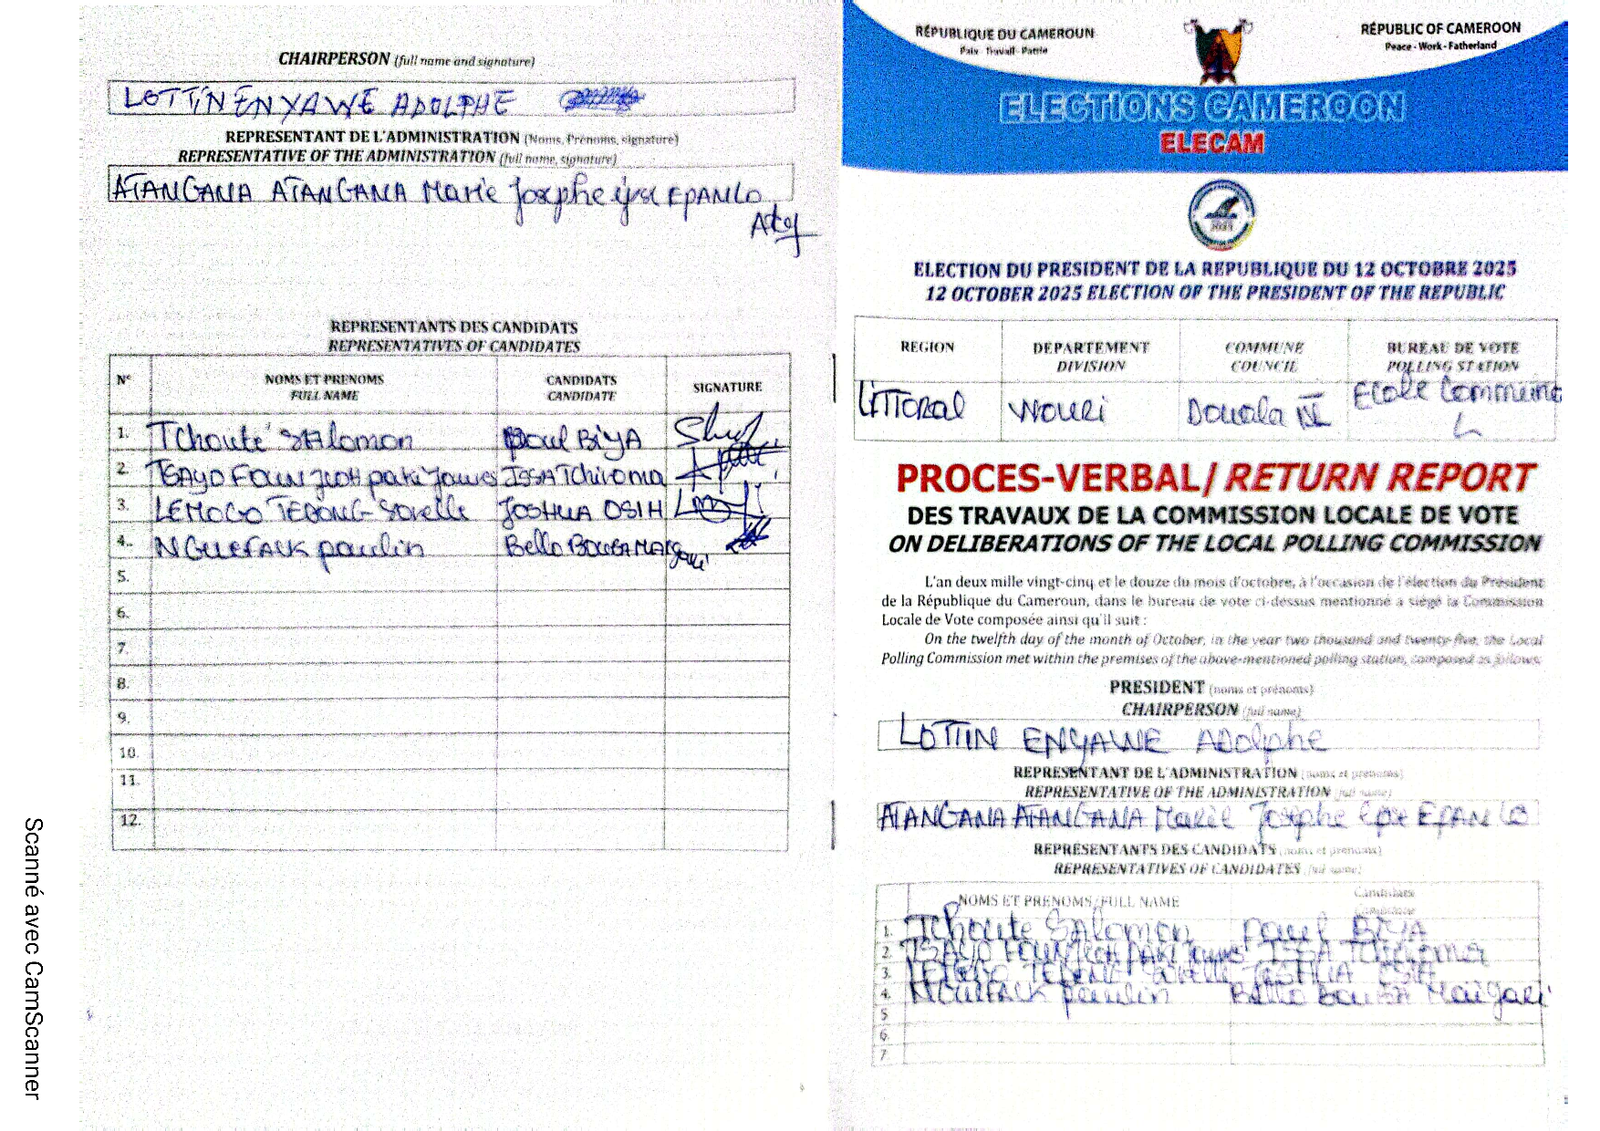 CHAIRPERSON (full name and signature)
LOTTIN ENYAWE ADOLPHE
REPRESENTANT DE L'ADMINISTRATION (Noms, Prénoms, signature)
REPRESENTATIVE OF THE ADMINISTRATION (full name, signature)
ATANGANA ATANGANA Marie Josephe EPANLO
REPRESENTANTS DES CANDIDATS
REPRESENTATIVES OF CANDIDATES
N° NOMS ET PRENOMS FULL NAME CANDIDATS CANDIDATE SIGNATURE
1. TChouté SAlomon Paul BiYA
2. TSAYO ISSA Tchiroma
3. LEMOGO TEDONG Sorelle JOSHUA OSIH
4. NGUEFACK paulin Bello BOUBA MAIgari
5.
6.
7.
8.
9.
10.
11.
12.
Scanné avec CamScanner
RÉPUBLIQUE DU CAMEROUN
Paix - Travail - Patrie
RÉPUBLIC OF CAMEROON
Peace - Work - Fatherland
ELECTIONS CAMEROON
ELECAM
ELECTION DU PRESIDENT DE LA REPUBLIQUE DU 12 OCTOBRE 2025
12 OCTOBER 2025 ELECTION OF THE PRESIDENT OF THE REPUBLIC
REGION DEPARTEMENT DIVISION COMMUNE COUNCIL BUREAU DE VOTE POLLING STATION
LiTToral Wouri Douala Ecole
PROCES-VERBAL/ RETURN REPORT
DES TRAVAUX DE LA COMMISSION LOCALE DE VOTE
ON DELIBERATIONS OF THE LOCAL POLLING COMMISSION
L'an deux mille vingt-cinq et le douze du mois d'octobre, à l'occasion de l'élection du Président
de la République du Cameroun, dans le bureau de vote ci-dessus mentionné a siégé la Commission
Locale de Vote composée ainsi qu'il suit :
On the twelfth day of the month of October, in the year two thousand and twenty-five, the Local
Polling Commission met within the premises of the above-mentioned polling station, composed as follows:
PRESIDENT (noms et prénoms)
CHAIRPERSON (full name)
LOTTIN ENYAWE ADolphe
REPRESENTANT DE L'ADMINISTRATION (noms et prénoms)
REPRESENTATIVE OF THE ADMINISTRATION (full name)
ATANGANA ATANGANA Marie Josephe EPANLO
REPRESENTANTS DES CANDIDATS (noms et prénoms)
REPRESENTATIVES OF CANDIDATES (full name)
NOMS ET PRENOMS/FULL NAME Candidats Candidate
1. TChouté SAlomon paul BIYA
2. TSAYO ISSA Tchiroma
3. LEMOGO TEDONG Sorelle JOSHUA OSIH
4. NGUEFACK paulin Bello BouBA Maigari
5
6.
7.